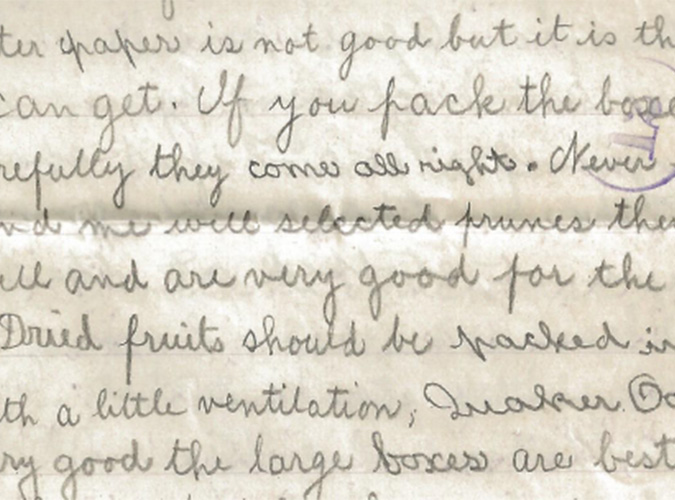 ter paper is not good but it is th
can get. If you pack the boxes
refully they come all right. Never
nd me well selected prunes they
ell and are very good for the
Dried fruits should be packed in
th a little ventilation, Quaker Oa
ry good the large boxes are best